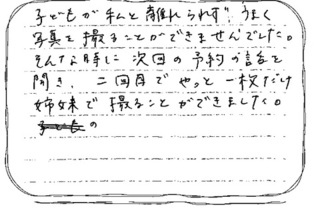 子どもが私と離れられず、うまく
写真を撮ることができませんでした。
そんな時に次回の予約の話を
聞き、二回目でやっと一枚だけ
姉妹で撮ることができました。
の